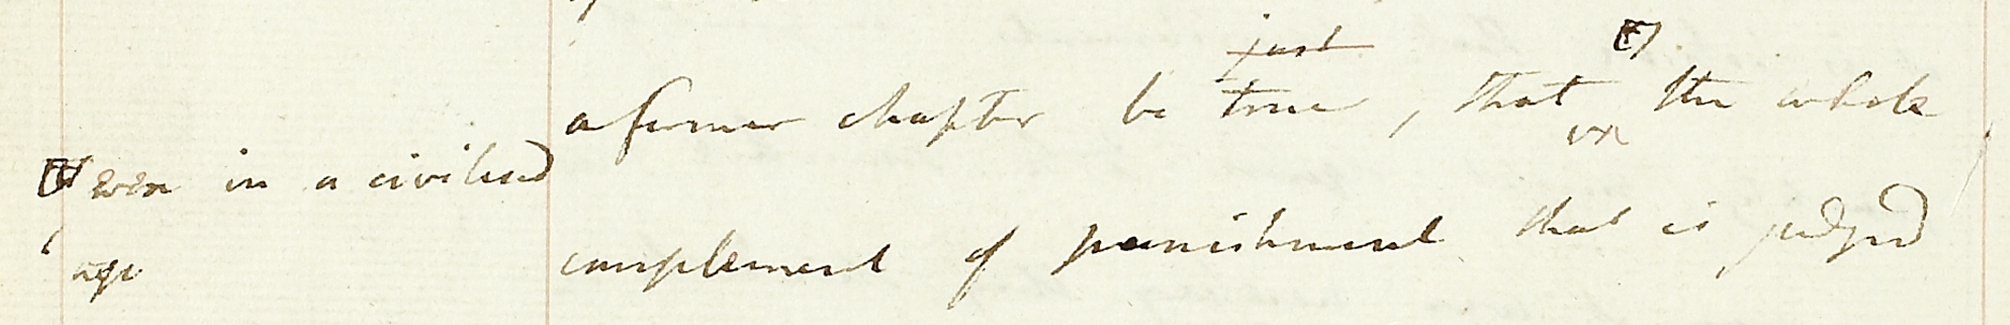 just
a former chapter be true, that the whole
even in a civilised
age
complement of punishment that is judged